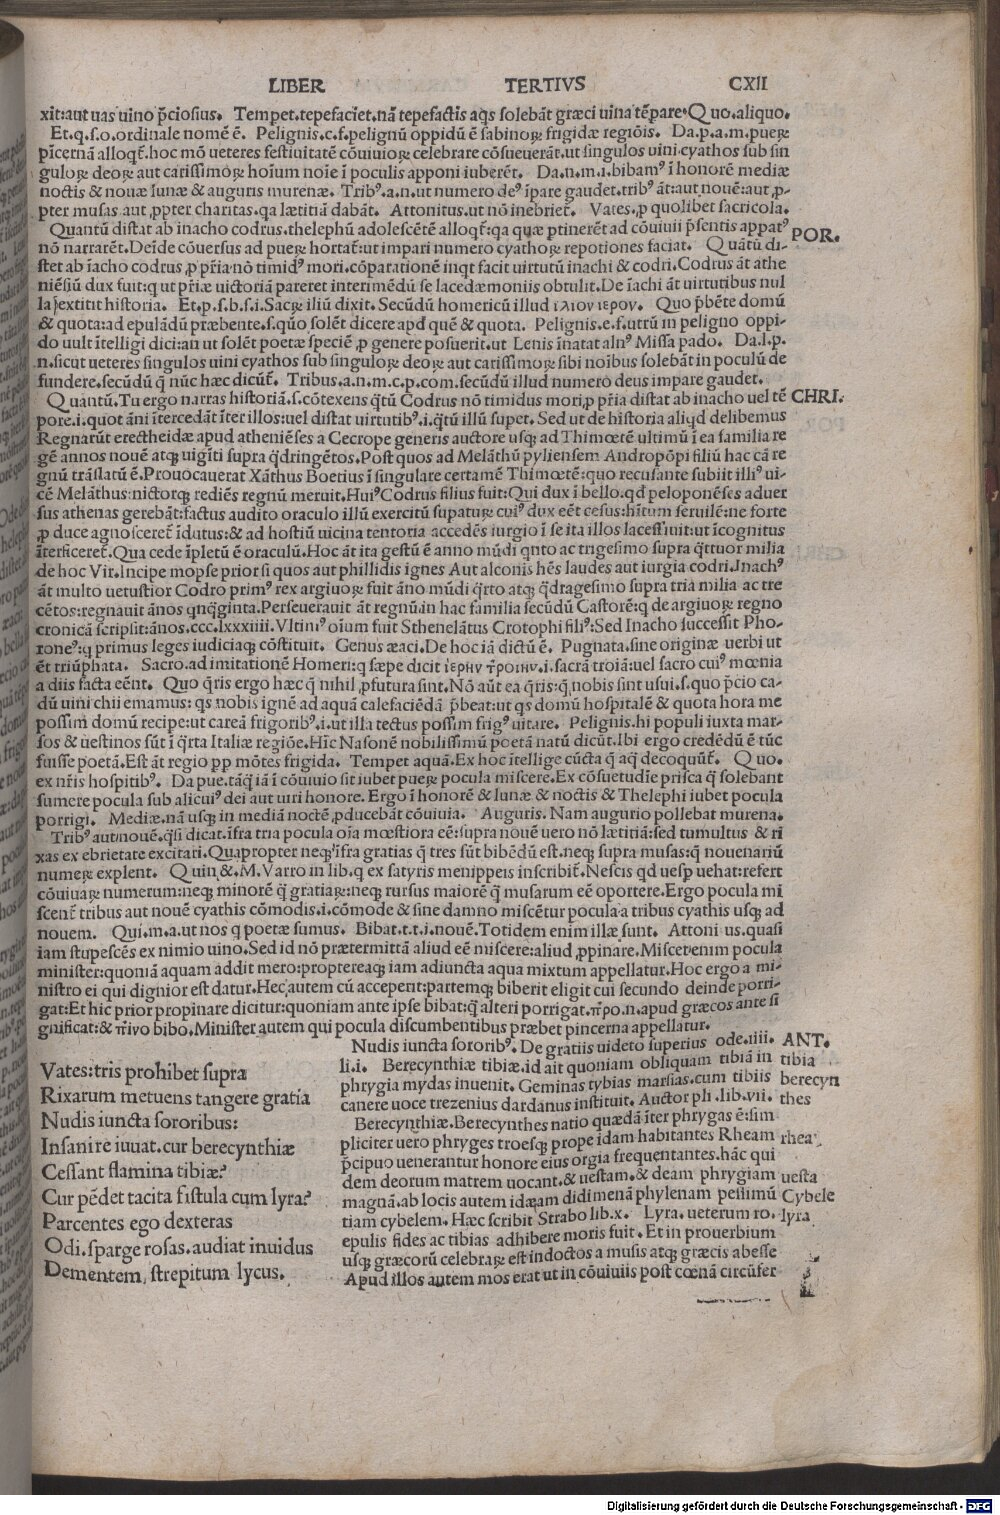 LIBER TERTIVS CXII
xit:aut uas uino p̄ciosius. Tempet.tepefaciet.nā tepefactis aq̄s solebāt græci uina tēpare. Quo.aliquo.
Et.q.s.o.ordinale nomē ē. Pelignis.c.f.pelignū oppidū ē sabinoꝝ frigidæ regiōis. Da.p.a.m.pueꝝ
pīcernā alloqt̄.hoc mō ueteres festiuitatē cōuiuioꝝ celebrare cōsueuerāt.ut singulos uini cyathos sub sin
guloꝝ deoꝝ aut carissimoꝝ hoīum noīe ī poculis apponi iuberēt. Da.n.m.i.bibamꝰ ī honorē mediæ
noctis & nouæ lunæ & auguris murenæ. Tribꝰ.a.n.ut numero deꝰ īpare gaudet.tribꝰ āt:aut nouē:aut ꝓ-
pter musas aut ꝓpter charitas.qa lætitiā dabāt. Attonitus.ut nō inebriet̄. Vates.ꝓ quolibet sacricola.
Quantū distat ab inacho codrus.thelephū adolescētē alloqt̄:qa quæ ꝑtinerēt ad cōuiuii p̄sentis appatꝰ
nō narrarēt.Deīde cōuersus ad pueꝝ hortat̄:ut impari numero cyathoꝝ repotiones faciat. Quātū di- POR.
stet ab īacho codrus ꝓ pr̄ia nō timidꝰ mori.cōparationē inqt facit uirtutū inachi & codri.Codrus āt athe
niēsiū dux fuit:q ut pr̄iæ uictoriā pareret interimēdū se lacedæmoniis obtulit.De īachi āt uirtutibus nul
la ꝑextitit historia. Et.p.s.b.s.i.Sacꝝ iliū dixit.Secūdū homericū illud ιλιον ιερον. Quo p̄bēte domū
& quota:ad epulādū præbente.s.qūo solēt dicere apd quē & quota. Pelignis.e.f.utrū in peligno oppi-
do uult ītelligi dici:an ut solēt poetæ speciē ꝓ genere posuerit.ut Lenis īnatat alnꝰ Missa pado. Da.l.p.
n.sicut ueteres singulos uini cyathos sub singuloꝝ deoꝝ aut carissimoꝝ sibi noībus solebāt in poculū de
fundere.secūdū q̄ nūc hæc dicūt̄. Tribus.a.n.m.c.p.com.secūdū illud numero deus impare gaudet.
Quantū.Tu ergo narras historiā.s.cōtexens q̄tū Codrus nō timidus mori,ꝓ pr̄ia distat ab inacho uel tē CHRI.
pore.i.quot āni ītercedāt īter illos:uel distat uirtutibꝰ.i.q̄tū illū supet. Sed ut de historia aliqd delibemus
Regnarūt erectheidæ apud atheniēses a Cecrope generis auctore usqꝫ ad Thimœtē ultimū ī ea familia re
gē annos nouē atqꝫ uigīti supra q̄dringētos.Post quos ad Melāthū pyliensem Andropōpi filiū hac cā re
gnū trāslatū ē.Prouocauerat Xāthus Boetius ī singulare certamē Thimœtē:quo recusante subiit illiꝰ ui-
cē Melāthus:uictorqꝫ rediēs regnū meruit.HuiꝰCodrus filius fuit:Qui dux ī bello.qd peloponēses aduer
sus athenas gerebāt:factus audito oraculo illū exercitū supatuꝝ cuiꝰ dux eēt cesus:hītum seruilē:ne forte
ꝓ duce agnosceret̄ īdutus:& ad hostiū uicina tentoria accedēs iurgio ī se ita illos lacessiuit:ut īcognitus
īterficeret̄.Qua cede īpletū ē oraculū.Hoc āt ita gestū ē anno mūdi qnto ac trigesimo supra q̄ttuor milia
de hoc Vir.Incipe mopse prior si quos aut phillidis ignes Aut alconis hēs laudes aut iurgia codri.Inachꝰ
āt multo uetustior Codro primꝰ rex argiuoꝝ fuit āno mūdi q̄rto atqꝫ q̄dragesimo supra tria milia ac tre
cētos:regnauit ānos qnq̄ginta.Perseuerauit āt regnū.in hac familia secūdū Castorē:q de argiuoꝝ regno
cronicā scripsit:ānos.ccc.lxxxiiii.Vltimꝰ oīum fuit Sthenelātus Crotophi filiꝰ:Sed Inacho successit Pho-
roneꝰ:q primus leges iudiciaqꝫ cōstituit. Genus æaci.De hoc iā dictū ē. Pugnata.sine origine uerbi ut
ēt triūphata. Sacro.ad imitationē Homeri:q sæpe dicit ιερην τροιην.i.sacrā troiā:uel sacro cuiꝰ mœnia
a diis facta eēnt. Quo q̄ris ergo hæc q̄ nihil ꝓfutura sint.Nō aūt ea q̄ris:q̄ nobis sint usui.s.quo p̄cio ca-
dū uini chii emamus: qs nobis ignē ad aquā calefaciēdā p̄beat:ut qs domū hospitalē & quota hora me
possim domū recipe:ut careā frigoribꝰ.i.ut illa tectus possim frigꝰ uitare. Pelignis.hi populi iuxta mar-
sos & uestinos sūt ī q̄rta Italiæ regiōe.Hīc Nasonē nobilissimū poetā natū dicūt.Ibi ergo credēdū ē tūc
fuisse poetā.Est āt regio pp mōtes frigida. Tempet aquā.Ex hoc ītellige cūcta q̄ aq̄ decoquūt̄. Quo.
ex nr̄is hospitibꝰ. Da pue.tāq̄ iā ī cōuiuio sit iubet pueꝝ pocula miscere.Ex cōsuetudīe prisca q̄ solebant
sumere pocula sub alicuiꝰ dei aut uiri honore. Ergo ī honorē & lunæ & noctis & Thelephi iubet pocula
porrigi. Mediæ.nā usqꝫ in mediā noctē ꝓducebāt cōuiuia. Auguris. Nam augurio pollebat murena.
Tribꝰ aut nouē.q̄si dicat.īfra tria pocula oīa mœstiora eē:supra nouē uero nō lætitiā:sed tumultus & ri
xas ex ebrietate excitari.Quapropter neqꝫ īfra gratias q̄ tres sūt bibēdū est.neqꝫ supra musas:q̄ nouenariū
numeꝝ explent. Quin &.M.Varro in lib.q ex satyris menippeis inscribit̄.Nescis qd uesꝑ uehat:refert
cōuiuaꝝ numerum:neqꝫ minorē q̄ gratiaꝝ:neqꝫ rursus maiorē q̄ musarum eē oportere.Ergo pocula mi
scent̄ tribus aut nouē cyathis cōmodis.i.cōmode & sine damno miscētur pocula a tribus cyathis usqꝫ ad
nouem. Qui.m.a.ut nos q poetæ sumus. Bibat.t.t.i.nouē.Totidem enim illæ sunt. Attoni us.quasi
iam stupescēs ex nimio uino.Sed id nō prætermittā aliud eē miscere:aliud ꝓpinare.Miscet enim pocula
minister:quoniā aquam addit mero:proptereaqꝫ iam adiuncta aqua mixtum appellatur.Hoc ergo a mi-
nistro ei qui dignior est datur.Hec autem cū accepent:partemqꝫ biberit eligit cui secundo deinde porri-
gat:Et hic prior propinare dicitur:quoniam ante ipse bibat:q̄ alteri porrigat.προ.n.apud græcos ante si
gnificat:& πινο bibo.Minister autem qui pocula discumbentibus præbet pincerna appellatur.
Vates:tris prohibet supra
Rixarum metuens tangere gratia
Nudis iuncta sororibus:
Insanire iuuat.cur berecynthiæ
Cessant flamina tibiæ?
Cur pēdet tacita fistula cum lyra?
Parcentes ego dexteras
Odi.sparge rosas.audiat inuidus
Dementem, strepitum lycus.
Nudis iuncta sororibꝰ.De gratiis uideto superius ode.iiii. ANT.
li.i. Berecynthiæ tibiæ.id ait quoniam obliquam tibiā in tibia
phrygia mydas inuenit. Geminas tybias marsias.cum tibiis berecyn
canere uoce trezenius dardanus instituit. Auctor pli.lib.vii. thes
Berecynthiæ.Berecynthes natio quædā īter phrygas ē:sim
pliciter uero phryges troesqꝫ prope idam habitantes Rheam rhea
p̄cipuo uenerantur honore eius orgia frequentantes.hāc qui
dem deorum matrem uocant.& uestam.& deam phrygiam uesta
magnā.ab locis autem idæam didimenā phylenam pessimū Cybele
tiam cybelem.Hæc scribit Strabo lib.x. Lyra.ueterum ro. lyra
epulis fides ac tibias adhibere moris fuit.Et in prouerbium
usqꝫ græcorū celebraꝝ est indoctos a musis atqꝫ græcis abesse
Apud illos autem mos erat ut in cōuiuiis post cœnā circūfer
Digitalisierung gefördert durch die Deutsche Forschungsgemeinschaft - DFG